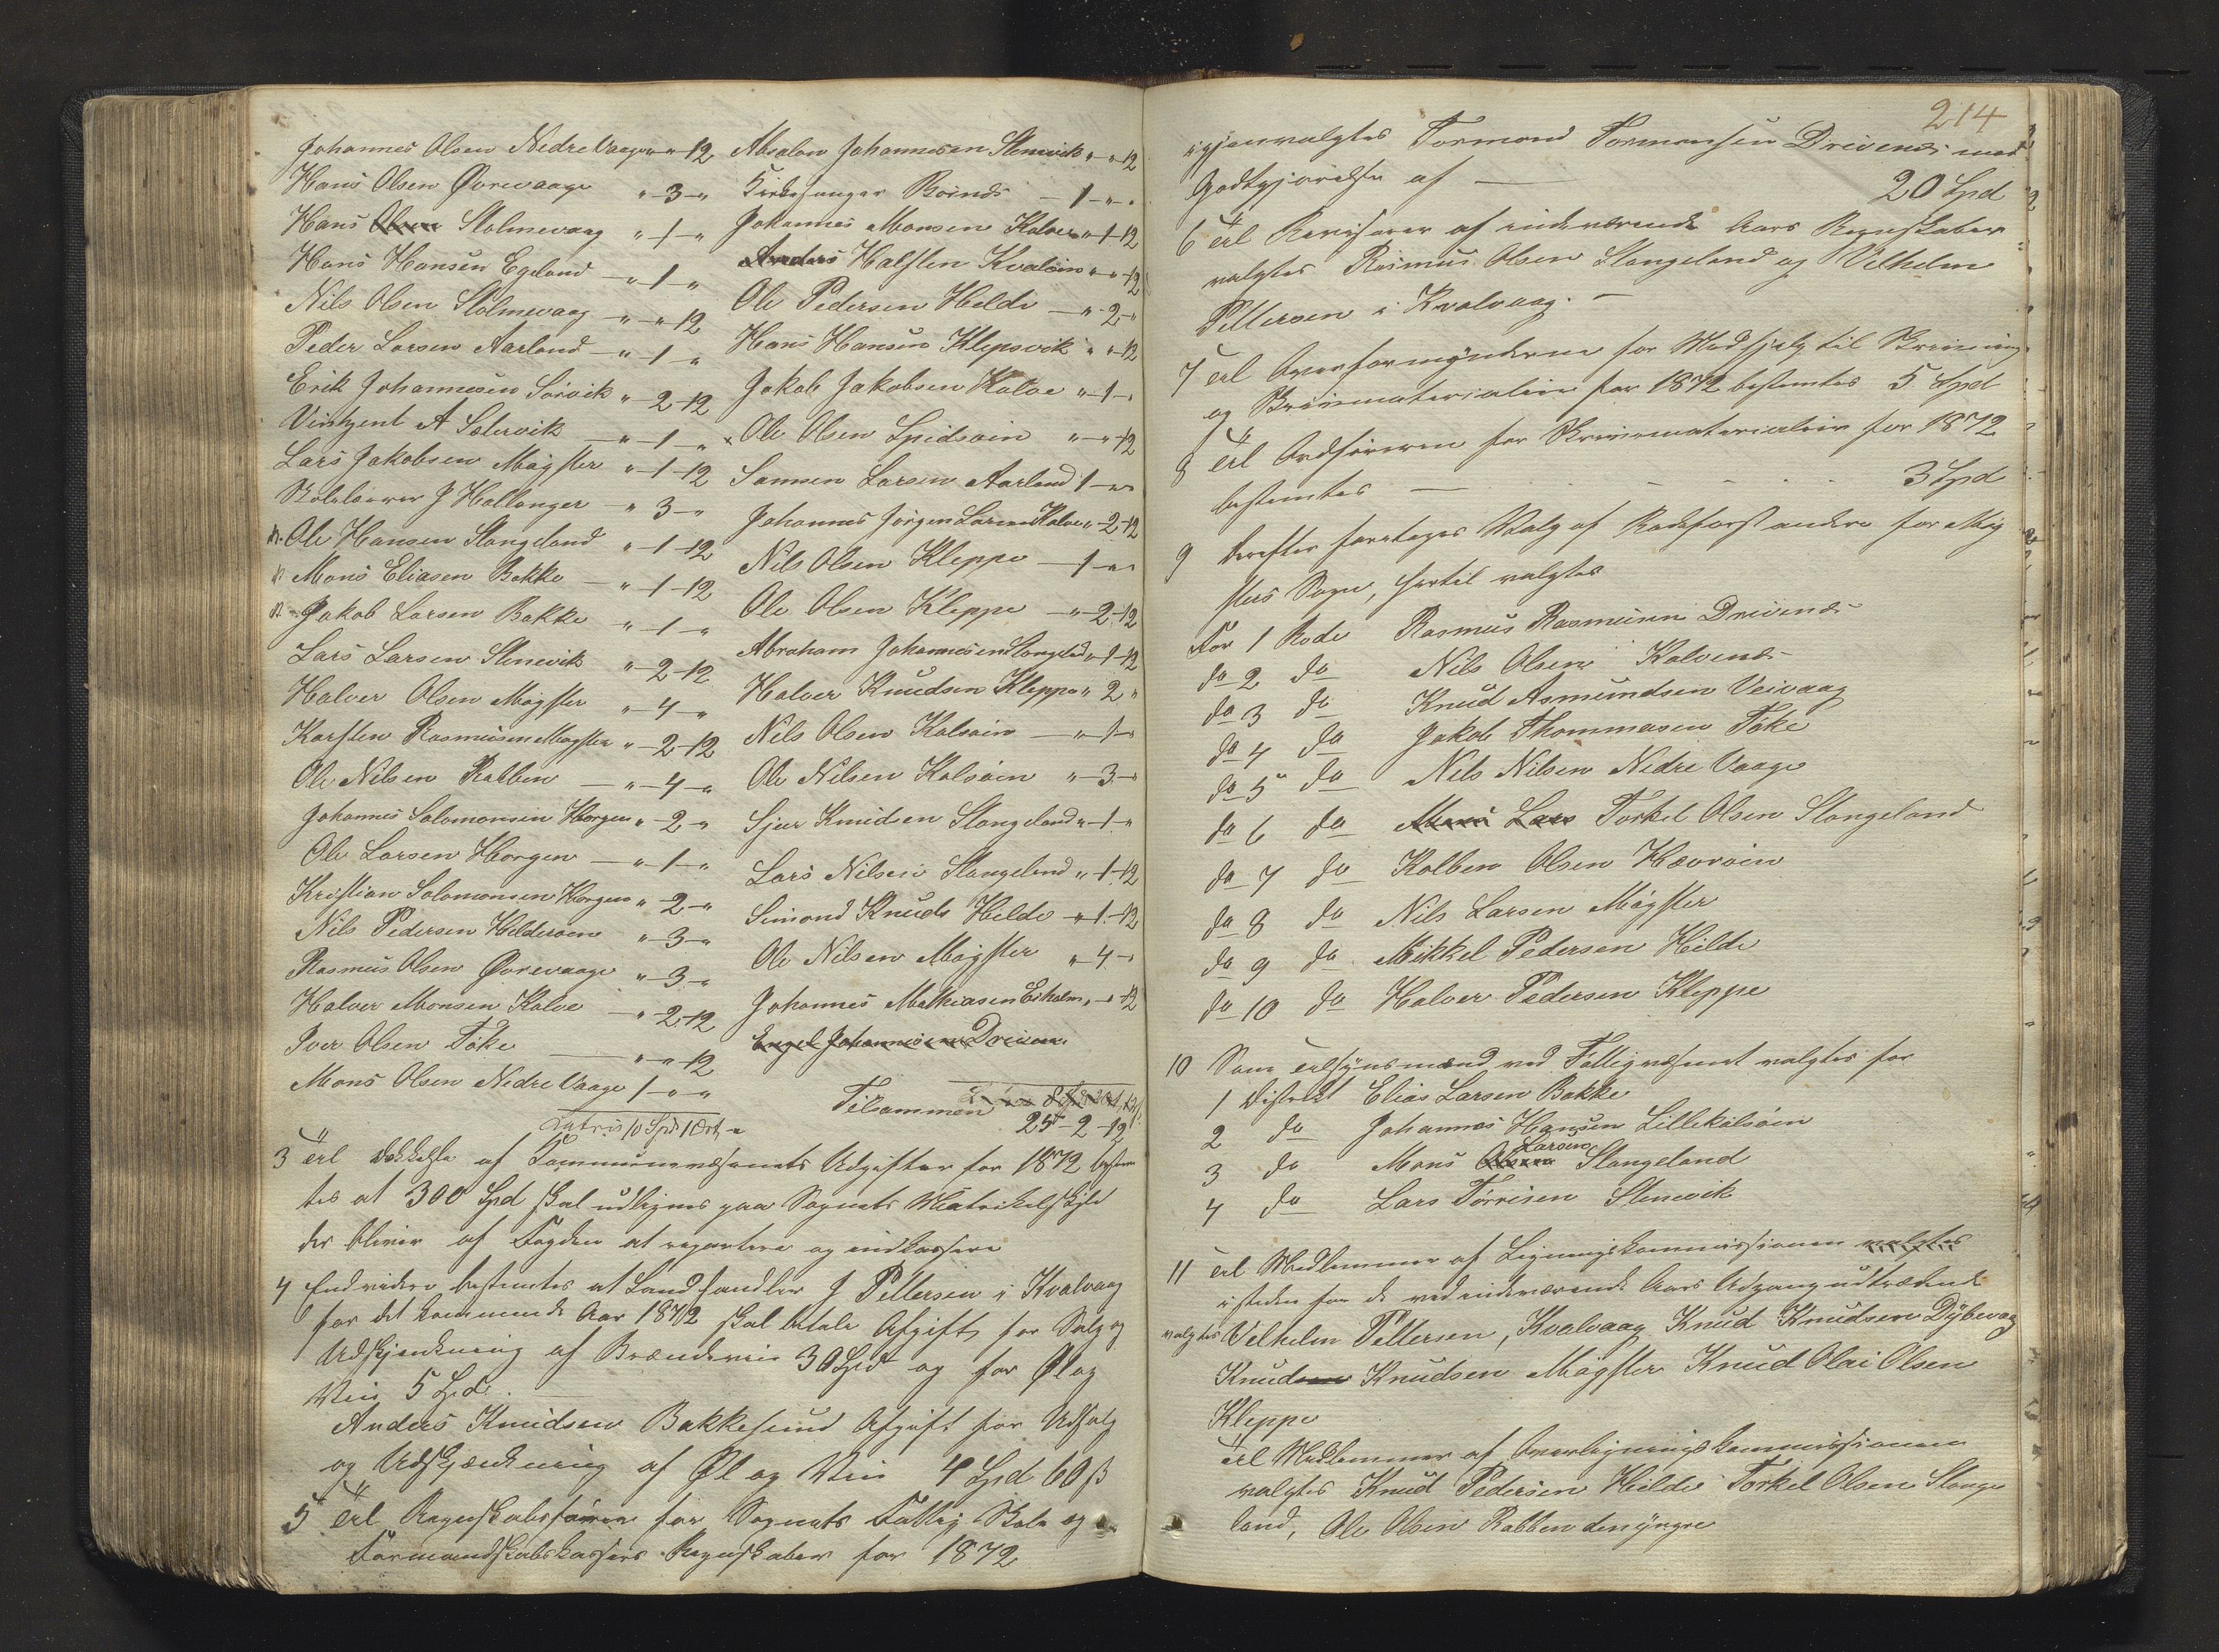 Johannes Olsen Nedre Vaage " " 12
Hans Olsen Øvrevaage " 3 "
Hans Olsen Stolmevaag " 1 "
Hans Hansen Egeland " 1 "
Nils Olsen Stolmevaag " " 12
Peder Larsen Aarland " 1 "
Erik Johannesen Sørvik " 2 12
Vintzent A Sælervik " 1 "
Lars Jakobsen Møgster " 1 12
Skolelærer J Hallanger " 3 "
Ole Hansen Stangeland " 1 12
Mons Eliasen Bakke " 1 12
Jakob Larsen Bakke " 1 "
Lars Larsen Stenevik " 2 12
Halver Olsen Møgster " 4 "
Karsten Rasmusen Møgster " 2 12
Ole Nilsen Rabben " 4 "
Johannes Salomonsen Horgen " 2 "
Ole Larsen Horgen " 1 "
Kristian Salomonsen Horgen " 2 "
Nils Pedersen Heldesøen " 3 "
Rasmus Olsen Øvrevaage " 3 "
Halver Monsen Kalve " 2 12
Iver Olsen Tøke " " 12
Mons Olsen Nedre Vaage 1 " "
Latris 10 Spd 1 Ort "
Absalon Johannesen Stenevik " " 12
Kirkesanger Boines 1 " "
Johannes Monsen Kalve " 1 12
Anders Halsten Kvaløen " " 12
Ole Pedersen Helde " 2 "
Hans Hansen Klepsvik " " 12
Jakob Jakobsen Kalve " 1 "
Ole Olsen Spidsøen " " 12
Samson Larsen Aarland 1 " "
Johannes Jørgen Larsen Kalve " 2 12
Nils Olsen Kleppe 1 " "
Ole Olsen Kleppe " 2 12
Abraham Johannesen Stangeland " 1 12
Halver Knudsen Kleppe " 2 "
Nils Olsen Kalsøen " 1 "
Ole Nilsen Kalsøen " 3 "
Sjur Knudsen Stangeland " 1 "
Lars Nilsen Stangeland " 1 12
Simond Knuds Helde " 1 12
Ole Nilsen Møgster " 4 "
Johannes Mathiasen Eikholm " " 12
Engel Johannesen Drivenes
Tilsammen 25 - 2 - 12
3 Til Dekkelse af Kommunevæsenets Udgifter for 1872 bestem
tes at 300 Spd skal udlignes paa Sognets Matrikelskyld
der bliver af Fogden at repartere og indkassere
4 Endvidere bestemtes at Landhandler J Pettersen i Kvalvaag
for det kommende Aar 1872 skal betale Afgift for Salg og
Udskjenkning af Brændevin 30 Spd og for Øl og
Vin 5 Spd.
Anders Knudsen Bakkesund Afgift for Udsalg
og Udskjænkning af Øl og Vin 4 Spd 60 ß
5 Til Regnskabsfører for Sognets Fattig Skole og
Formandskabskasses Regnskaber for 1872
214
igjenvalgtes Tormond Tormonsen Drivenes med
Godtgjørelse af 20 Spd
6 Til Revisorer af indeværende Aars Regnskaber
valgtes Rasmus Olsen Stangeland og Vilhelm
Pettersen i Kvalvaag.
7 Til Overformynderne for Medhjelp til Skrivning
og Skrivmaterialier for 1872 bestemtes 5 Spd
8 Til Ordføreren for Skrivematerialier for 1872
bestemtes 3 Spd
9 Derefter foretages Valg af Rodeforstandere for Møg
sters Sogn, hertil valgtes
For 1 Rode Rasmus Rasmusen Drivenes
do 2 do Nils Olsen Kalvenes
do 3 do Knud Asmundsen Veivaag
do 4 do Jakob Thommasen Tøke
do 5 do Nils Nilsen Nedre Vaage
do 6 do Mons Lars Torkel Olsen Stangeland
do 7 do Kolben Olsen Hævrøen
do 8 do Nils Larsen Møgster
do 9 do Mikkel Pedersen Hilde
do 10 do Halver Pedersen Kleppe
10 Som Tilsynsmænd ved Fattigvæsenet valgtes for
1 Distrikt Elias Larsen Bakke
2 do Johannes Hansen Lillekalsøen
3 do Mons Olsen Larsen Stangeland
4 do Lars Tørrisen Stenevik
11 Til Medlemmer af Ligningskommissionen valgtes
isteden for de ved indeværende Aars Udgang udtrædende
valgtes Vilhelm Pettersen, Kvalvaag Knud Knudsen Dybevaag
Knud Knudsen Møgster Knud Olai Olsen
Kleppe
Til Medlemmer af Overligningskommissionen
valgtes Knud Pedersen Hilde Torkel Olsen Stange
land, Ole Olsen Rabben den yngre